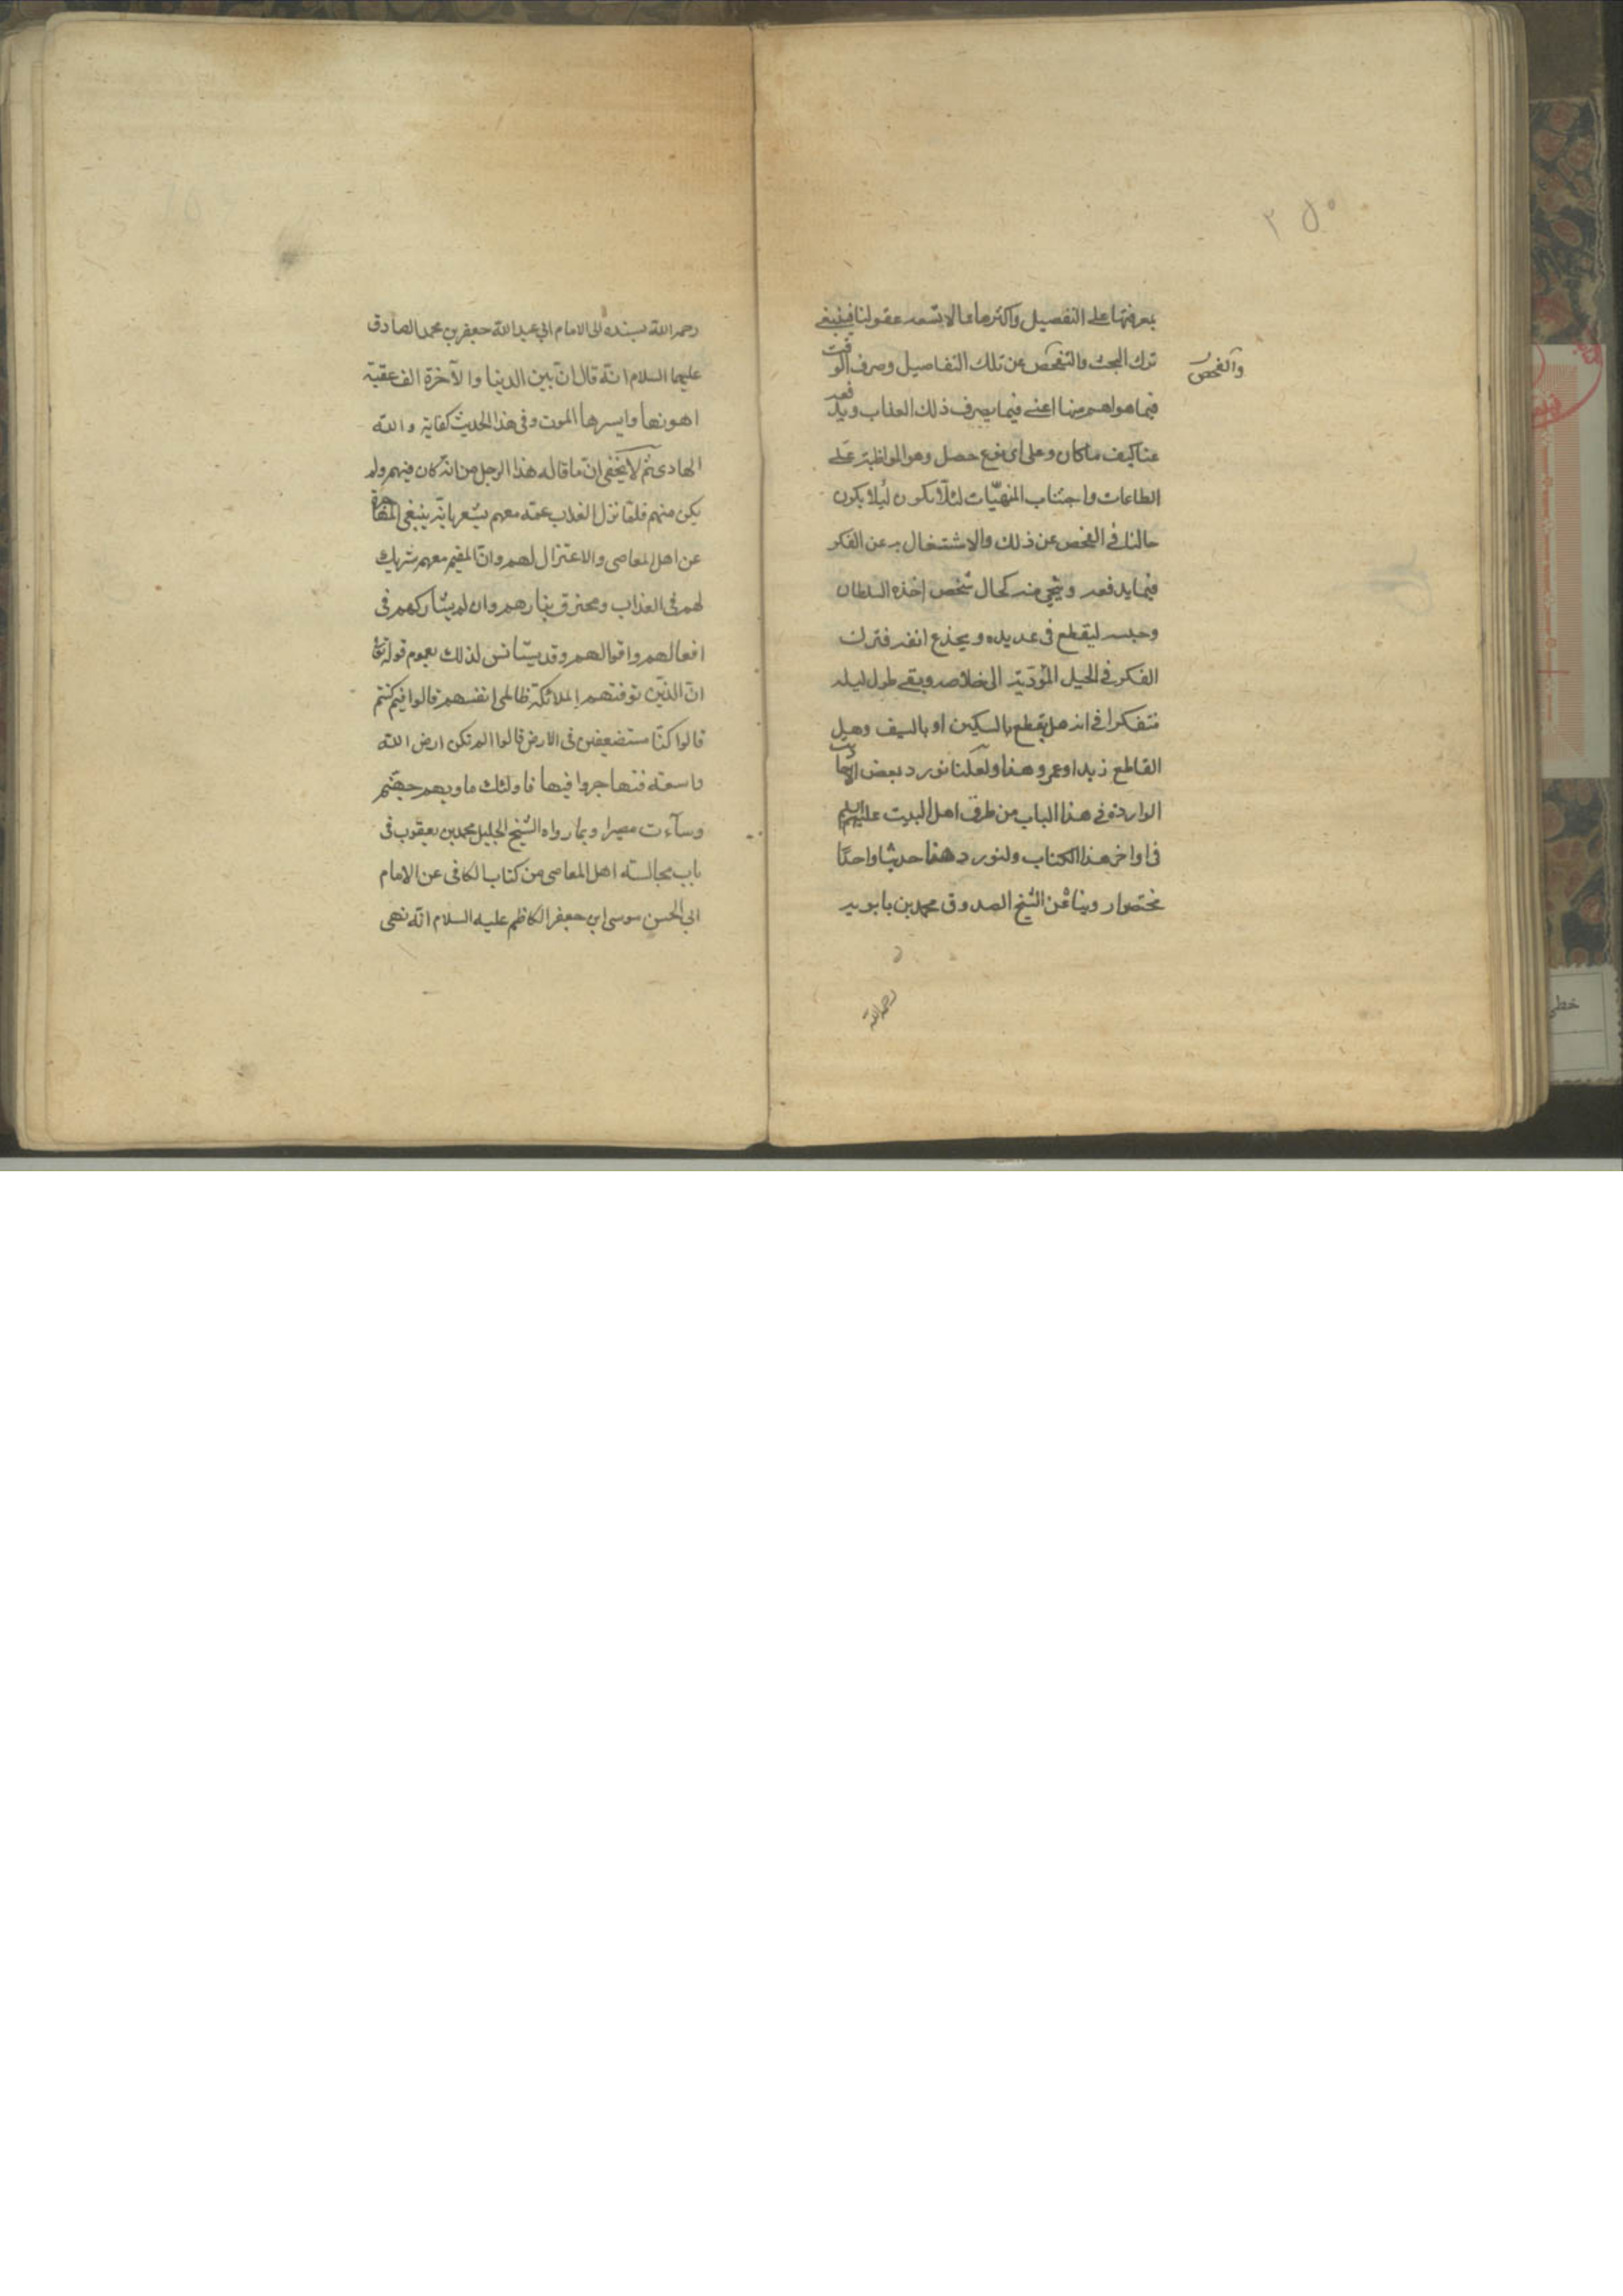 ٢٥٠
بمعرفتها على التفصيل واكثرها مما لا تسعه عقولنا فينبغى
ترك البحث والتفحص عن تلك التفاصيل وصرف الوقت
والفحص
فيما هو اهم منها اعنى فيما يصرف ذلك العذاب ويدفعه
عنا كيف ما كان وعلى اى نوع حصل وهو المواظبة على
الطاعات واجتناب المنهيّات لئلّا يكون لئلا يكون
حالنا فى الفحص عن ذلك والاشتغال به عن الفكر
فيما يدفعه وينجى منه كحال شخص اخذه السلطان
وحبسه ليقطع فى غد يده ويجذع انفه فترك
الفكر فى الحيل المؤدّية الى خلاصه وبقى طول ليله
متفكرا فى انه هل يقطع بالسكين او بالسيف وهل
القاطع زيد او عمرو هذا ولعلّنا نورد بعض
الواردة فى هذا الباب من طرق اهل البيت عليهم السلم
فى اواخر هذا الكتاب ولنورد هنا حديثا واحدًا
مختصرا روينا عن الشيخ الصدوق محمد بن بابويه
رحمه الله
رحمه الله بسنده الى الامام ابى عبد الله جعفر بن محمد الصادق
عليهما السلام انّه قال انّ بين الدنيا والآخرة الف عقبة
اهونها وايسرها الموت وفى هذا الحديث كفاية والله
الهادى ثم لا يخفى انّ ما قاله هذا الرجل من انّه كان فيهم ولم
يكن منهم فلمّا نزل العذاب عمّه معهم يشعر بانّه ينبغى المهاجرة
عن اهل المعاصى والاعتزال لهم وانّ المقيم معهم شريك
لهم فى العذاب ومحترق بنارهم وان لم يشاركهم فى
افعالهم واقوالهم وقد يستانس لذلك بعموم قوله تعالى
انّ الذين توفتهم الملائكة ظالمى انفسهم قالوا فيم كنتم
قالوا كنّا مستضعفين فى الارض قالوا الم تكن ارض الله
واسعة فتهاجروا فيها فاولئك ماويهم جهنّم
وسآءت مصيرا وبما رواه الشيخ الجليل محمد بن يعقوب فى
باب مجالسة اهل المعاصى من كتاب الكافى عن الامام
ابى الحسن موسى ابن جعفر الكاظم عليه السلام انّه نهى
خطى